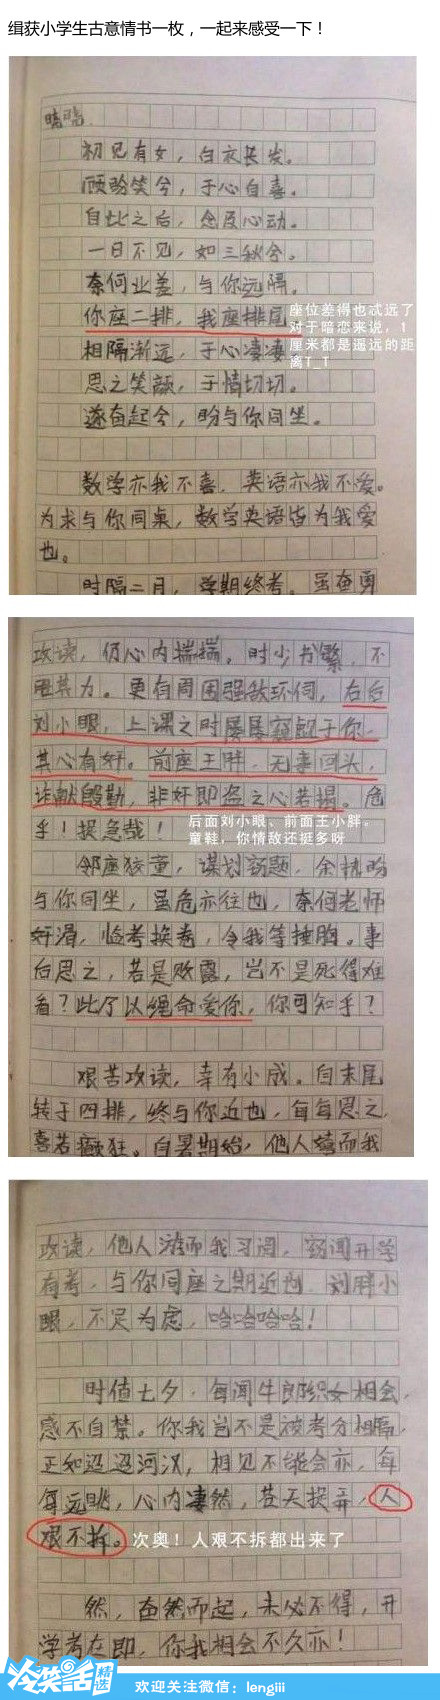 缉获小学生古意情书一枚，一起来感受一下！
晴晴
初见有女，白衣长发。
顾盼笑兮，于心自喜。
自此之后，念及心动。
一日不见，如三秋兮。
奈何业差，与你远隔。
你座二排，我座排尾
座位差得也忒远了
对于暗恋来说，1
厘米都是遥远的距
离T_T
相隔渐远，于心凄凄
思之笑颜，于情切切。
遂奋起兮，盼与你同坐。
数学亦我不喜，英语亦我不爱。
为求与你同桌，数学英语皆为我爱
也。
时隔二月，学期终考。虽奋勇
攻读，仍心内揣揣，时少书繁，不
甚其力。更有周围强敌环伺，右后
刘小眼，上课之时屡屡窥觎于你，
其心有奸。前座王胖，无事回头，
诈献殷勤，非奸即盗之心若揭。危
乎！提急哉！
后面刘小眼、前面王小胖。
童鞋，你情敌还挺多呀
邻座狡童，谋划窃题，余情盼
与你同坐，虽危亦往也，奈何老师
奸滑，临考换卷，令我等捶胸。事
后思之，若是败露，岂不是死得难
看？此乃以绳命爱你，你可知乎？
艰苦攻读，幸有小成。自末尾
转于四排，终与你近也，每每思之，
喜若癫狂。自暑期始，他人嬉而我
攻读，他人游而我习阅，窃闻开学
有考，与你同座之期近到，刘胖小
眼，不足为虑，哈哈哈哈！
时值七夕，每闻牛郎织女相会，
感不自禁。你我岂不是被考分相隔，
正如迢迢河汉，相见不能会亦，每
每远眺，心内凄然，苍天捉弄，人
艰不拆。
次奥！人艰不拆都出来了
然，奋然而起，未必不得，开
学考在即，你我相会不久亦！
冷笑话
精选
欢迎关注微信：lengiii